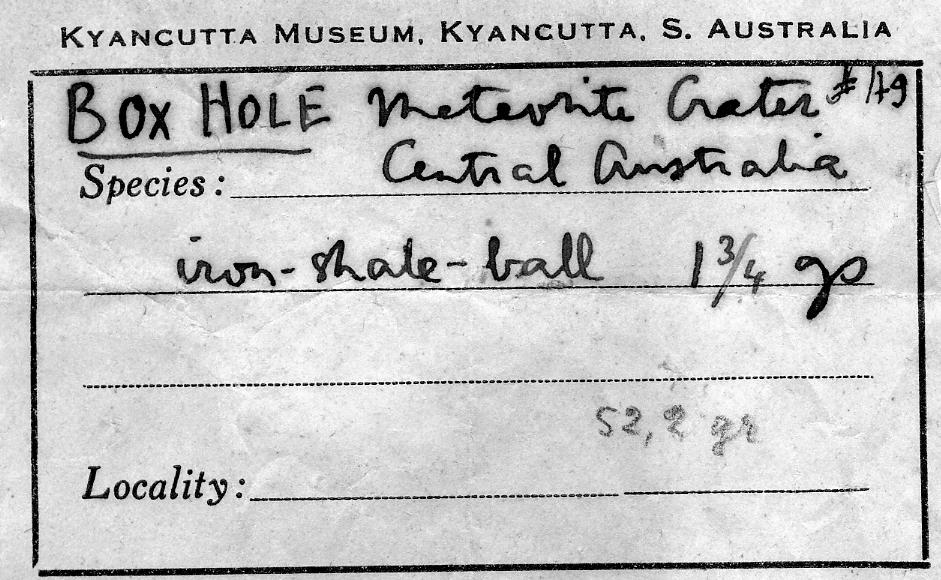 KYANCUTTA MUSEUM, KYANCUTTA, S. AUSTRALIA
BOX HOLE Meteorite Crater #149
Species: Central Australia
iron-shale-ball 1 3/4 gs
52,2 gr
Locality: